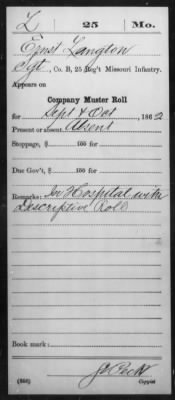 L | 25 | Mo.
Ernst Langton
Sgt., Co. B, 25 Reg't Missouri Infantry.
Appears on
Company Muster Roll
for Sept & Oct, 1862
Present or absent Absent
Stoppage, $ 100 for
Due Gov't, $ 100 for
Remarks: In Hospital with
Descriptive Roll
Book mark:
(358)
Copyist.